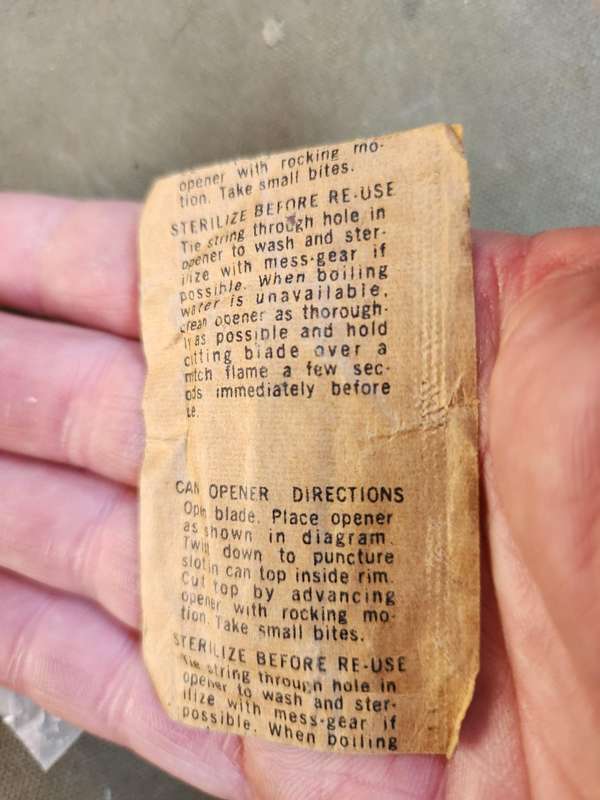 opener with rocking mo-
tion. Take small bites.
STERILIZE BEFORE RE-USE
Tie string through hole in
opener to wash and ster-
ilize with mess-gear if
possible. When boiling
water is unavailable,
clean opener as thorough-
ly as possible and hold
cutting blade over a
match flame a few sec-
onds immediately before
CAN OPENER DIRECTIONS
Open blade. Place opener
as shown in diagram.
Twist down to puncture
slot in can top inside rim.
Cut top by advancing
opener with rocking mo-
tion. Take small bites.
STERILIZE BEFORE RE-USE
Tie string through hole in
opener to wash and ster-
ilize with mess-gear if
possible. When boiling